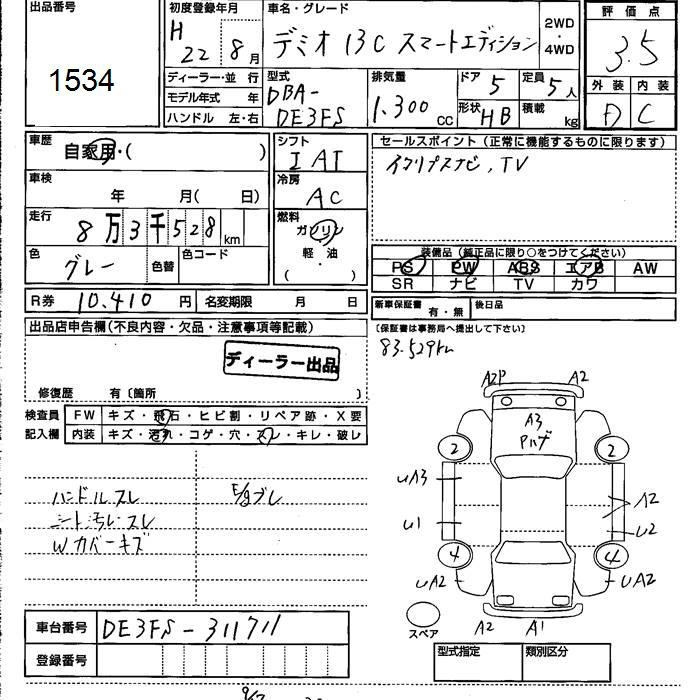 出品番号
1534
初度登録年月
H 22 8月
車名・グレード
デミオ 13C スマートエディション
2WD・4WD
評価点
3.5
外装 内装
D C
ディーラー・並行
モデル年式 年
ハンドル 左・右
型式
DBA-
DE3FS
排気量
1.300 cc
ドア 5
定員 5人
形状 HB
積載 kg
車歴
自家用・( )
車検
年 月( 日)
走行
8万3千528km
色
グレー
色替
色コード
シフト
IAT
冷房
AC
燃料
ガソリン
軽・油
( )
セールスポイント(正常に機能するものに限ります)
イクリプスナビ、TV
装備品(純正品に限り○をつけてください)
PS PW ABS エアB AW
SR ナビ TV カワ
R券 10,410 円
名変期限 月 日
新車保証書 有・無
後日品
(保証書は事務局へ提出して下さい)
83.529km
出品店申告欄(不良内容・欠品・注意事項等記載)
ディーラー出品
修復歴 有〔箇所 〕
検査員記入欄
FW キズ・飛石・ヒビ割・リペア跡・X要
内装 キズ・汚れ・コゲ・穴・スレ・キレ・破レ
ハンドルスレ
シート汚レ、スレ
Wカバーキズ
E/gブレ
A2P A2
A3
Pハゲ
2 2
UA3 A2
U1 U2
4 4
UA2 UA2
A2 A1
スペア
車台番号 DE3FS-311711
登録番号
型式指定 類別区分